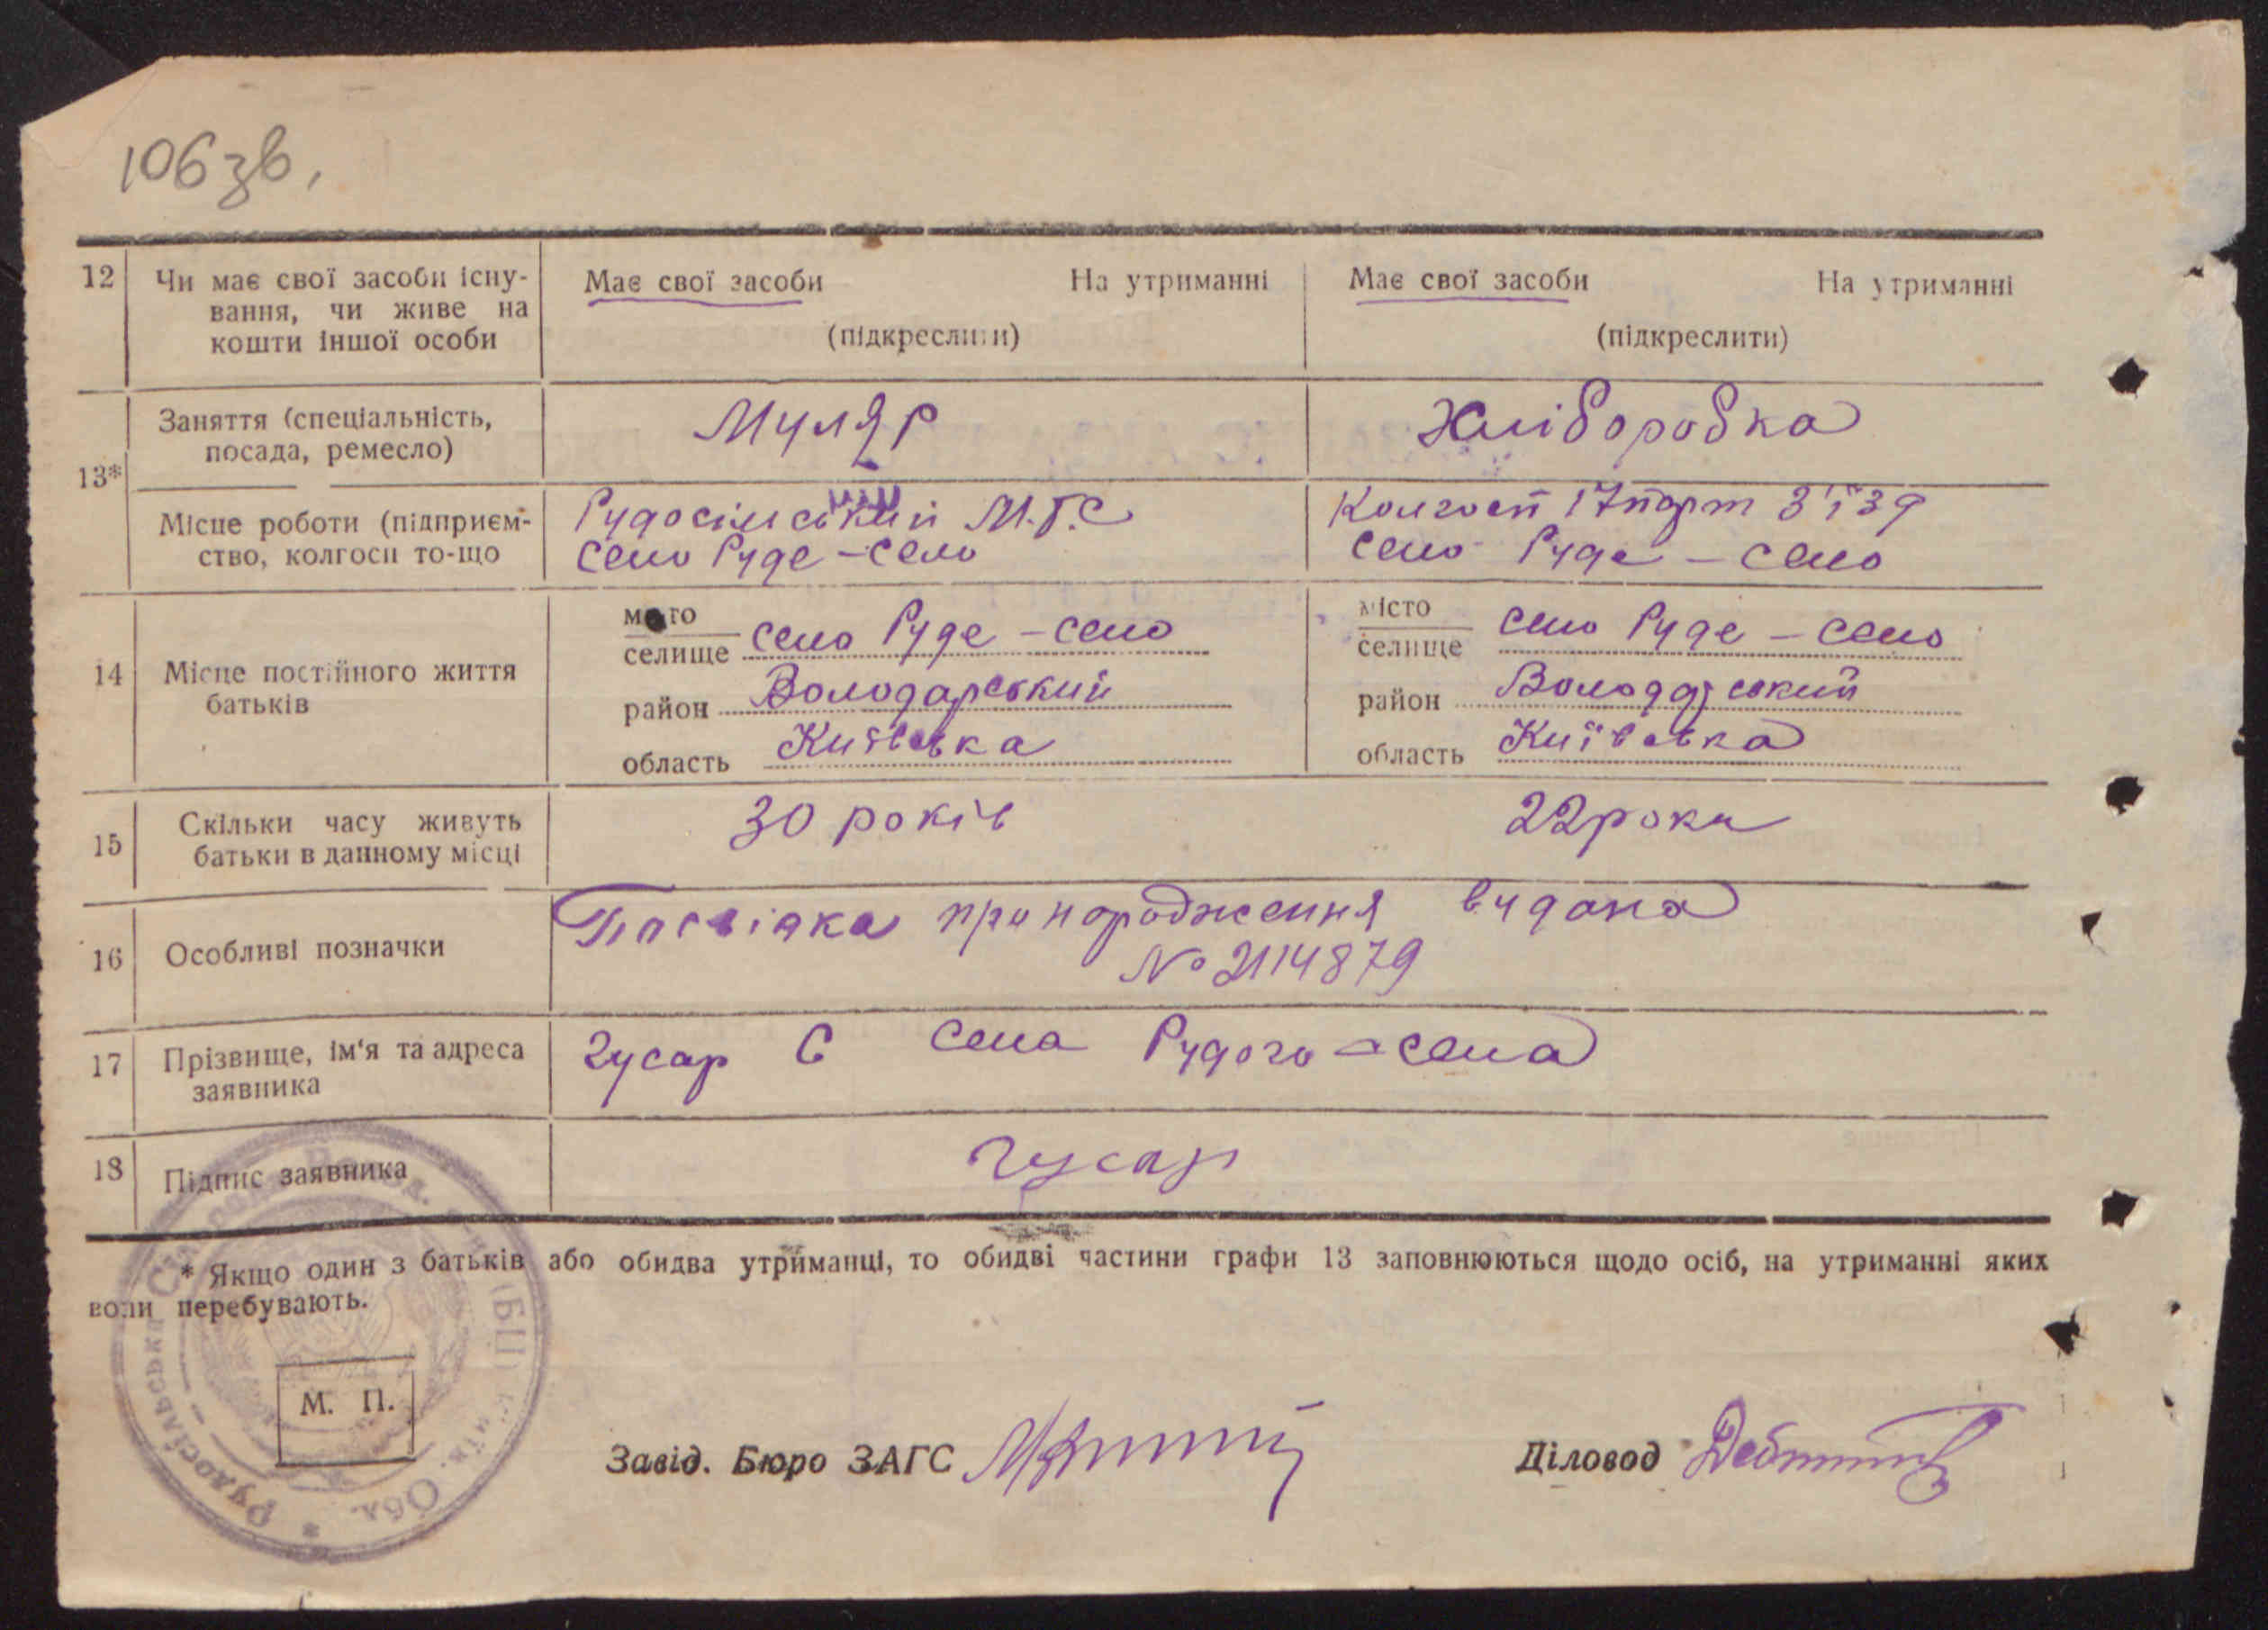 106 зв.
12 Чи має свої засоби існу-
вання, чи живе на
кошти іншої особи
Має свої засоби На утриманні
(підкреслити)
Має свої засоби На утриманні
(підкреслити)
13*
Заняття (спеціальність,
посада, ремесло)
Муляр
Хліборобка
Місце роботи (підприєм-
ство, колгосп то-що
Рудосільський М.Т.С
село Руде-село
Колгосп 17 парт з'їзд
село Руде-село
14 Місце постійного життя
батьків
місто
селище село Руде-село
район Володарський
область Київська
місто
селище село Руде-село
район Володарський
область Київська
15 Скільки часу живуть
батьки в данному місці
30 років
22 роки
16 Особливі позначки
Посвідка про народження видана
№ 2114879
17 Прізвище, ім'я та адреса
заявника
Гусар С села Рудого-села
18 Підпис заявника
Гусар
* Якщо один з батьків або обидва утриманці, то обидві частини графи 13 заповнюються щодо осіб, на утриманні яких
вони перебувають.
М. П.
Завід. Бюро ЗАГС
Діловод
Рудосільська Обл.